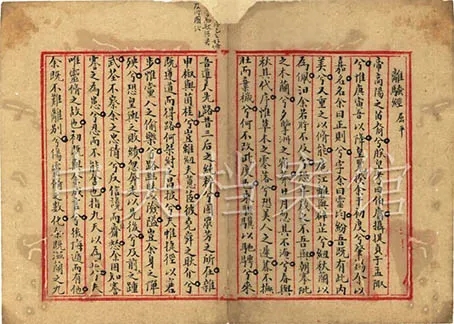 離騷經 屈平
帝高陽之苗裔兮朕皇考曰伯庸攝提貞于孟陬
兮惟庚寅吾以降皇覽揆余于初度兮肇錫余以
嘉名名余曰正則兮字余曰靈均紛吾既有此內
美兮又重之以脩能扈江離與辟芷兮紉秋蘭以
為佩汨余若將不及兮恐年歲之不吾與朝搴阰
之木蘭兮夕攬洲之宿莽日月忽其不淹兮春與
秋其代序惟草木之零落兮恐美人之遲暮撫
壯而棄穢兮何不改此度乘騏驥以馳騁兮來
吾道夫先路昔三后之純粹兮固衆芳之所在雜
申椒與菌桂兮豈維紉夫蕙茝彼堯舜之耿介兮
既遵道而得路何桀紂之猖披兮夫唯捷徑以窘
步惟黨人之偷樂兮路幽昧以險隘豈余身之憚
殃兮恐皇輿之敗績忽奔走以先後兮及前王之踵
武荃不察余之中情兮反信讒而齌怒余固知謇
謇之為患兮忍而不能舍也指九天以為正兮夫
唯靈脩之故也初既與余成言兮後悔遁而有他
余既不難離別兮傷靈脩之數化余既滋蘭之九
中央档案馆